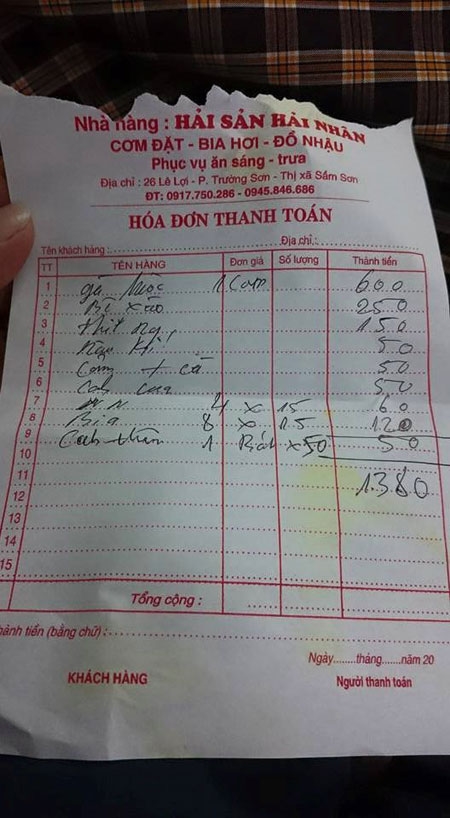 Nhà hàng : HẢI SẢN HẢI NHÀN
CƠM ĐẶT - BIA HƠI - ĐỒ NHẬU
Phục vụ ăn sáng - trưa
Địa chỉ : 26 Lê Lợi - P. Trường Sơn - Thị xã Sầm Sơn
ĐT: 0917.750.286 - 0945.846.686
HÓA ĐƠN THANH TOÁN
Tên khách hàng : Địa chỉ :
TT TÊN HÀNG Đơn giá Số lượng Thành tiền
1 gà luộc 1 con 600
2 xào 250
3 thịt 150
4 50
5 + cà 50
6 canh cua 50
7 4 x 15 60
8 Bia 8 x 15 120
9 Canh thêm 1 Bát x50 50
10
11 1380
12
13
14
15
Tổng cộng :
hành tiền (bằng chữ) :
Ngày........tháng.......năm 20
KHÁCH HÀNG Người thanh toán